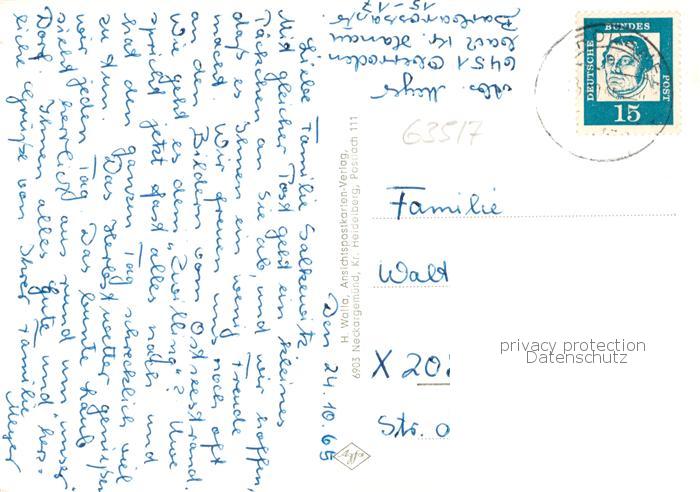 Den 24.10.65
Liebe Familie
Mit gleicher Post geht ein kleines
Päckchen an Sie ab, und wir hoffen,
daß es Ihnen ein wenig Freude
macht. Wir freuen uns noch oft
an den Bildern vom Ostseestrand.
Wie geht es dem "Zwilling"? Uwe
spricht jetzt fast alles nach und
hat den ganzen Tag schrecklich viel
zu tun. Das Herbstwetter genießen
wir jeden Tag. Das bunte Laub
sieht herrlich aus rund um unser
Dorf. Ihnen alles Gute und herz-
liche Grüße von Ihrer Familie
Meyer
Abs. Meyer
6451 Oberroden
Kr. Hanau
Barbarossastr.
15-17
H. Walla, Ansichtspostkarten-Verlag,
6903 Neckargemünd, Kr. Heidelberg, Postfach 111
DEUTSCHE BUNDES POST
15
6351/7
Familie
Walt
X 20
Str. 0
privacy protection
Datenschutz